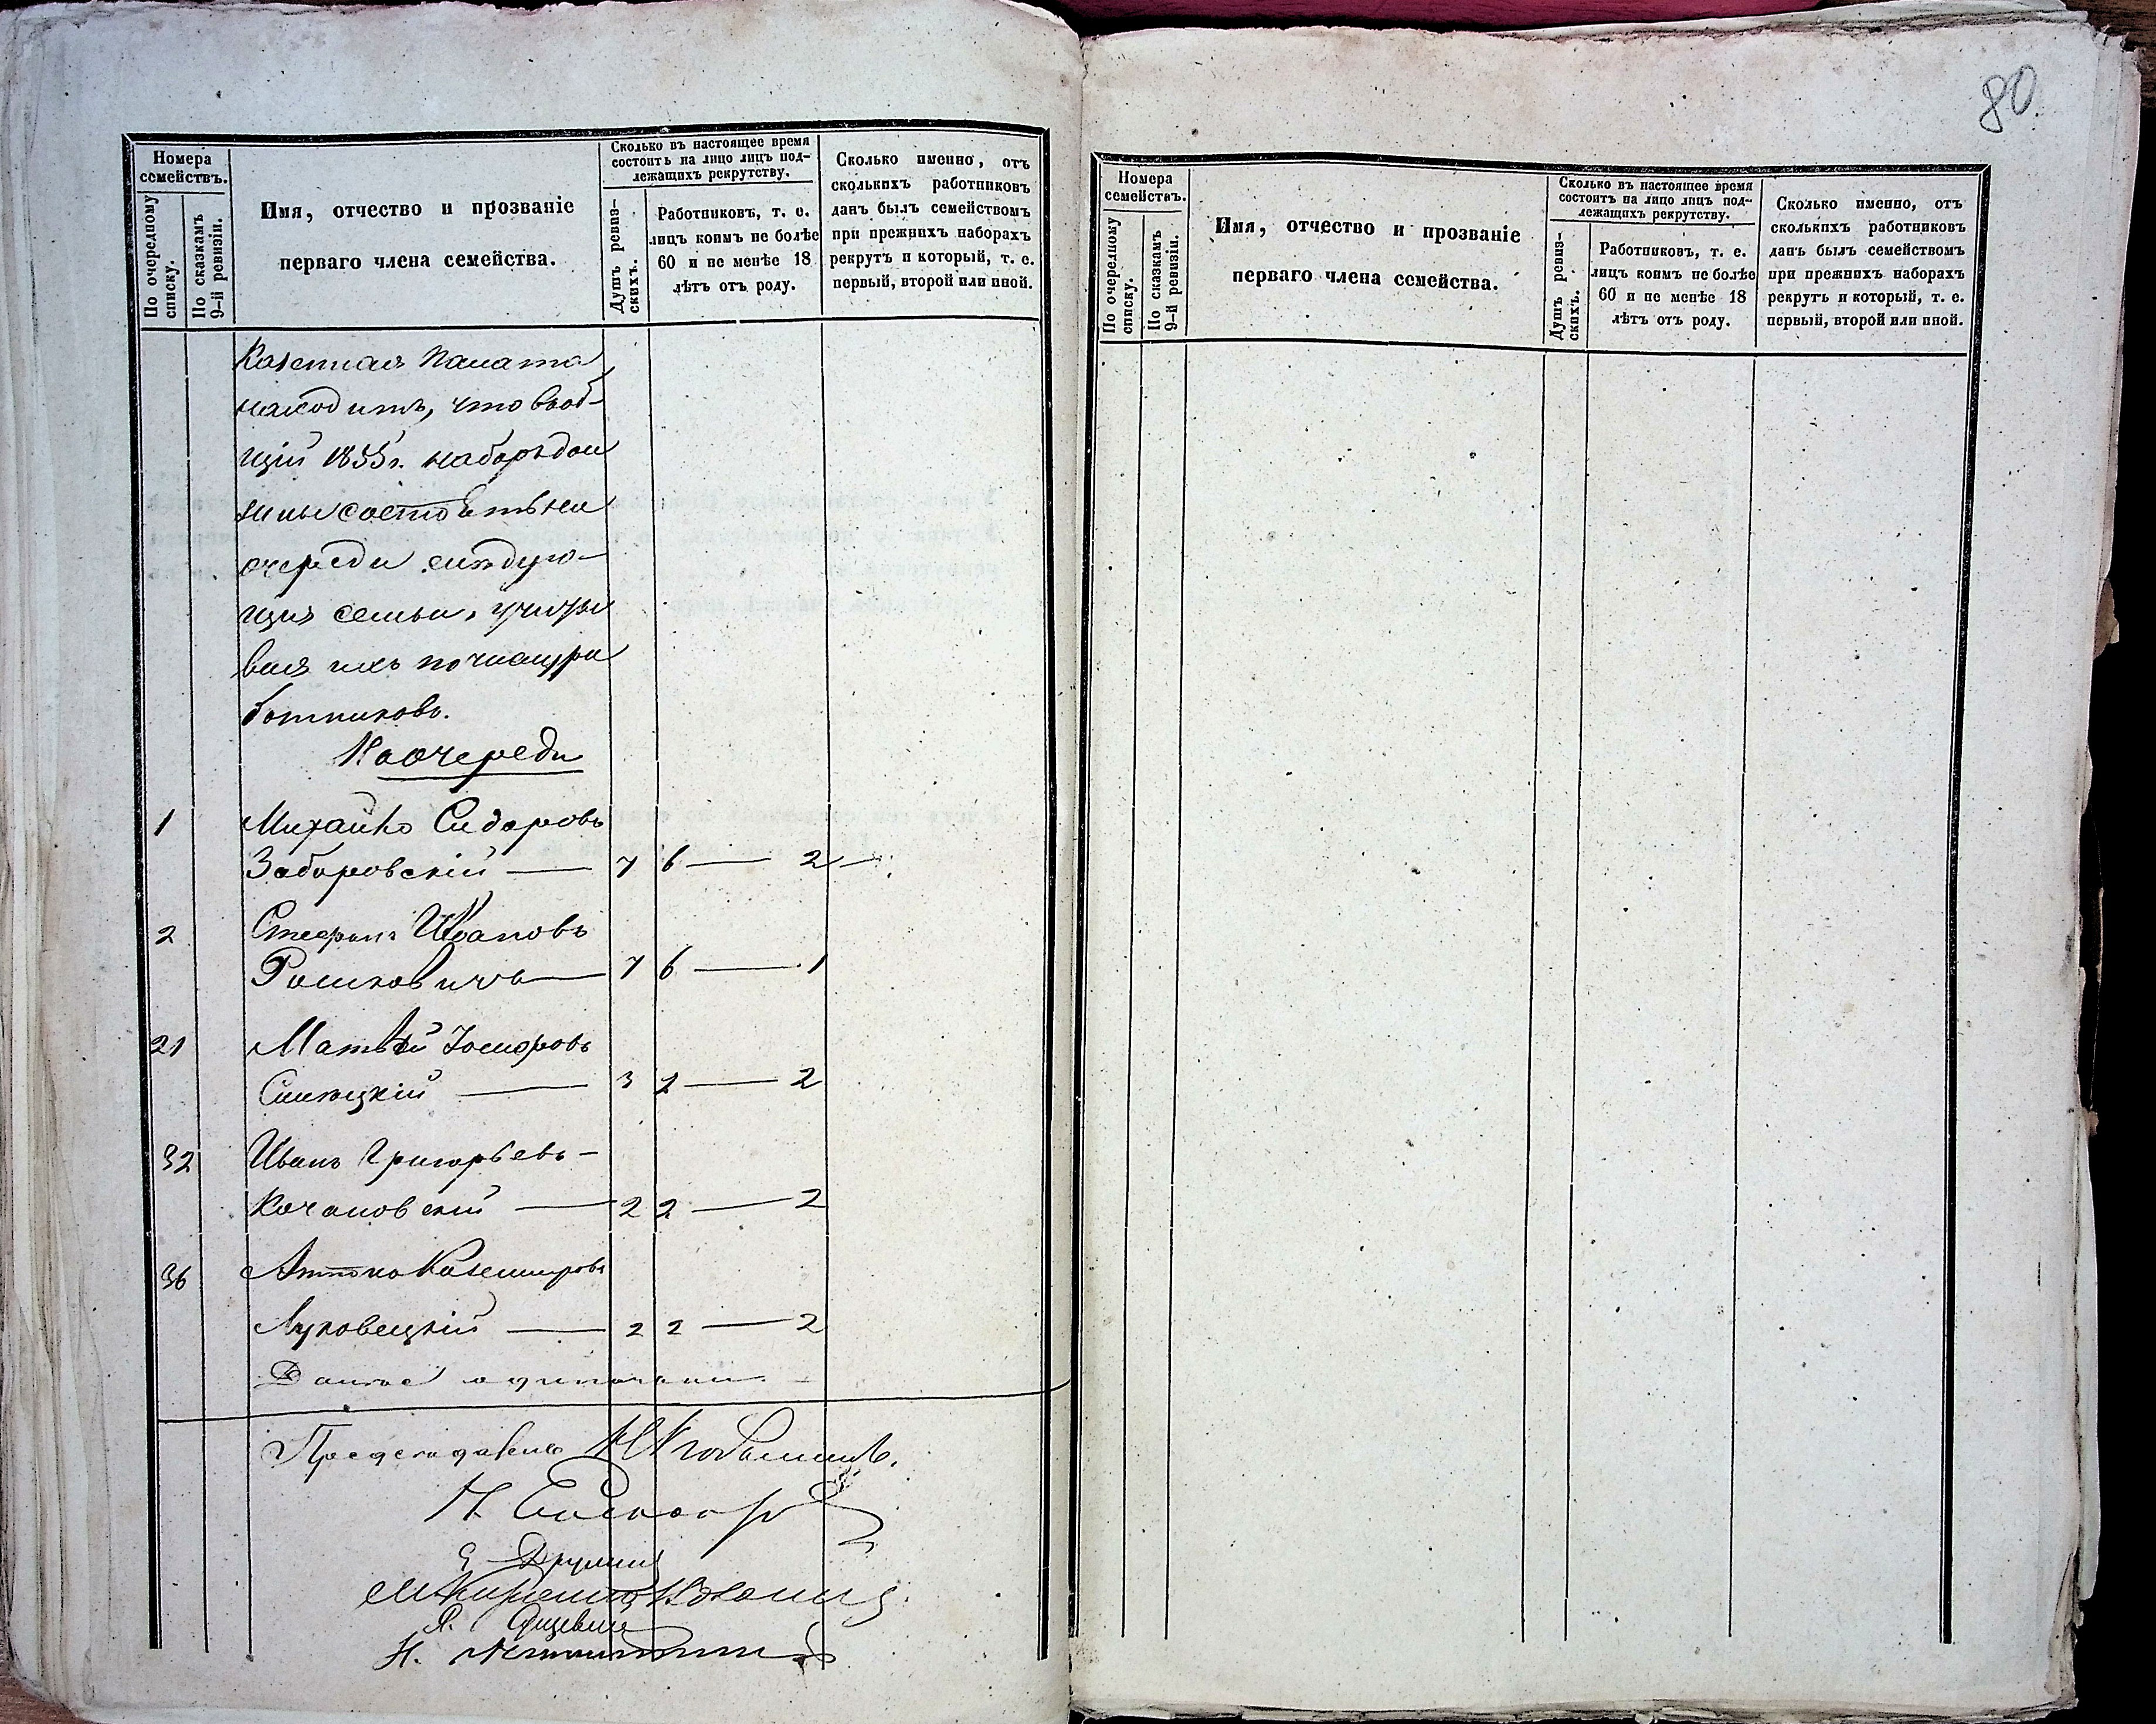 80.
Номера
семействъ.
По очередному
списку.
По сказкамъ
9-й ревизіи.
Имя, отчество и прозваніе
перваго члена семейства.
Сколько въ настоящее время
состоитъ на лицо лицъ под-
лежащихъ рекрутству.
Душъ ревиз-
скихъ.
Работниковъ, т. е.
лицъ коимъ не болѣе
60 и не менѣе 18
лѣтъ отъ роду.
Сколько именно, отъ
сколькихъ работниковъ
данъ былъ семействомъ
при прежнихъ наборахъ
рекрутъ и который, т. е.
первый, второй или иной.
Казенная Палата
находитъ, что въ об-
щій 1855 г. наборъ дол
жны состоять на
очереди слѣдую-
щія семьи,
вая ихъ по числу ра
ботниковъ.
На очереди
1 Михайло Сидоровъ
Заборовскій — 7 6 — 2 —
2 Стефанъ Ивановъ
7 6 — 1
21 Матвѣй Іосифовъ
3 2 — 2
32 Иванъ Григорьевъ —
Качановскій — 2 2 — 2
36 Антонъ Казимировъ
Луковецкій — 2 2 — 2
Далѣе одиночки.
Предсѣдатель
Номера
семействъ.
По очередному
списку.
По сказкамъ
9-й ревизіи.
Имя, отчество и прозваніе
перваго члена семейства.
Сколько въ настоящее время
состоитъ на лицо лицъ под-
лежащихъ рекрутству.
Душъ ревиз-
скихъ.
Работниковъ, т. е.
лицъ коимъ не болѣе
60 и не менѣе 18
лѣтъ отъ роду.
Сколько именно, отъ
сколькихъ работниковъ
данъ былъ семействомъ
при прежнихъ наборахъ
рекрутъ и который, т. е.
первый, второй или иной.